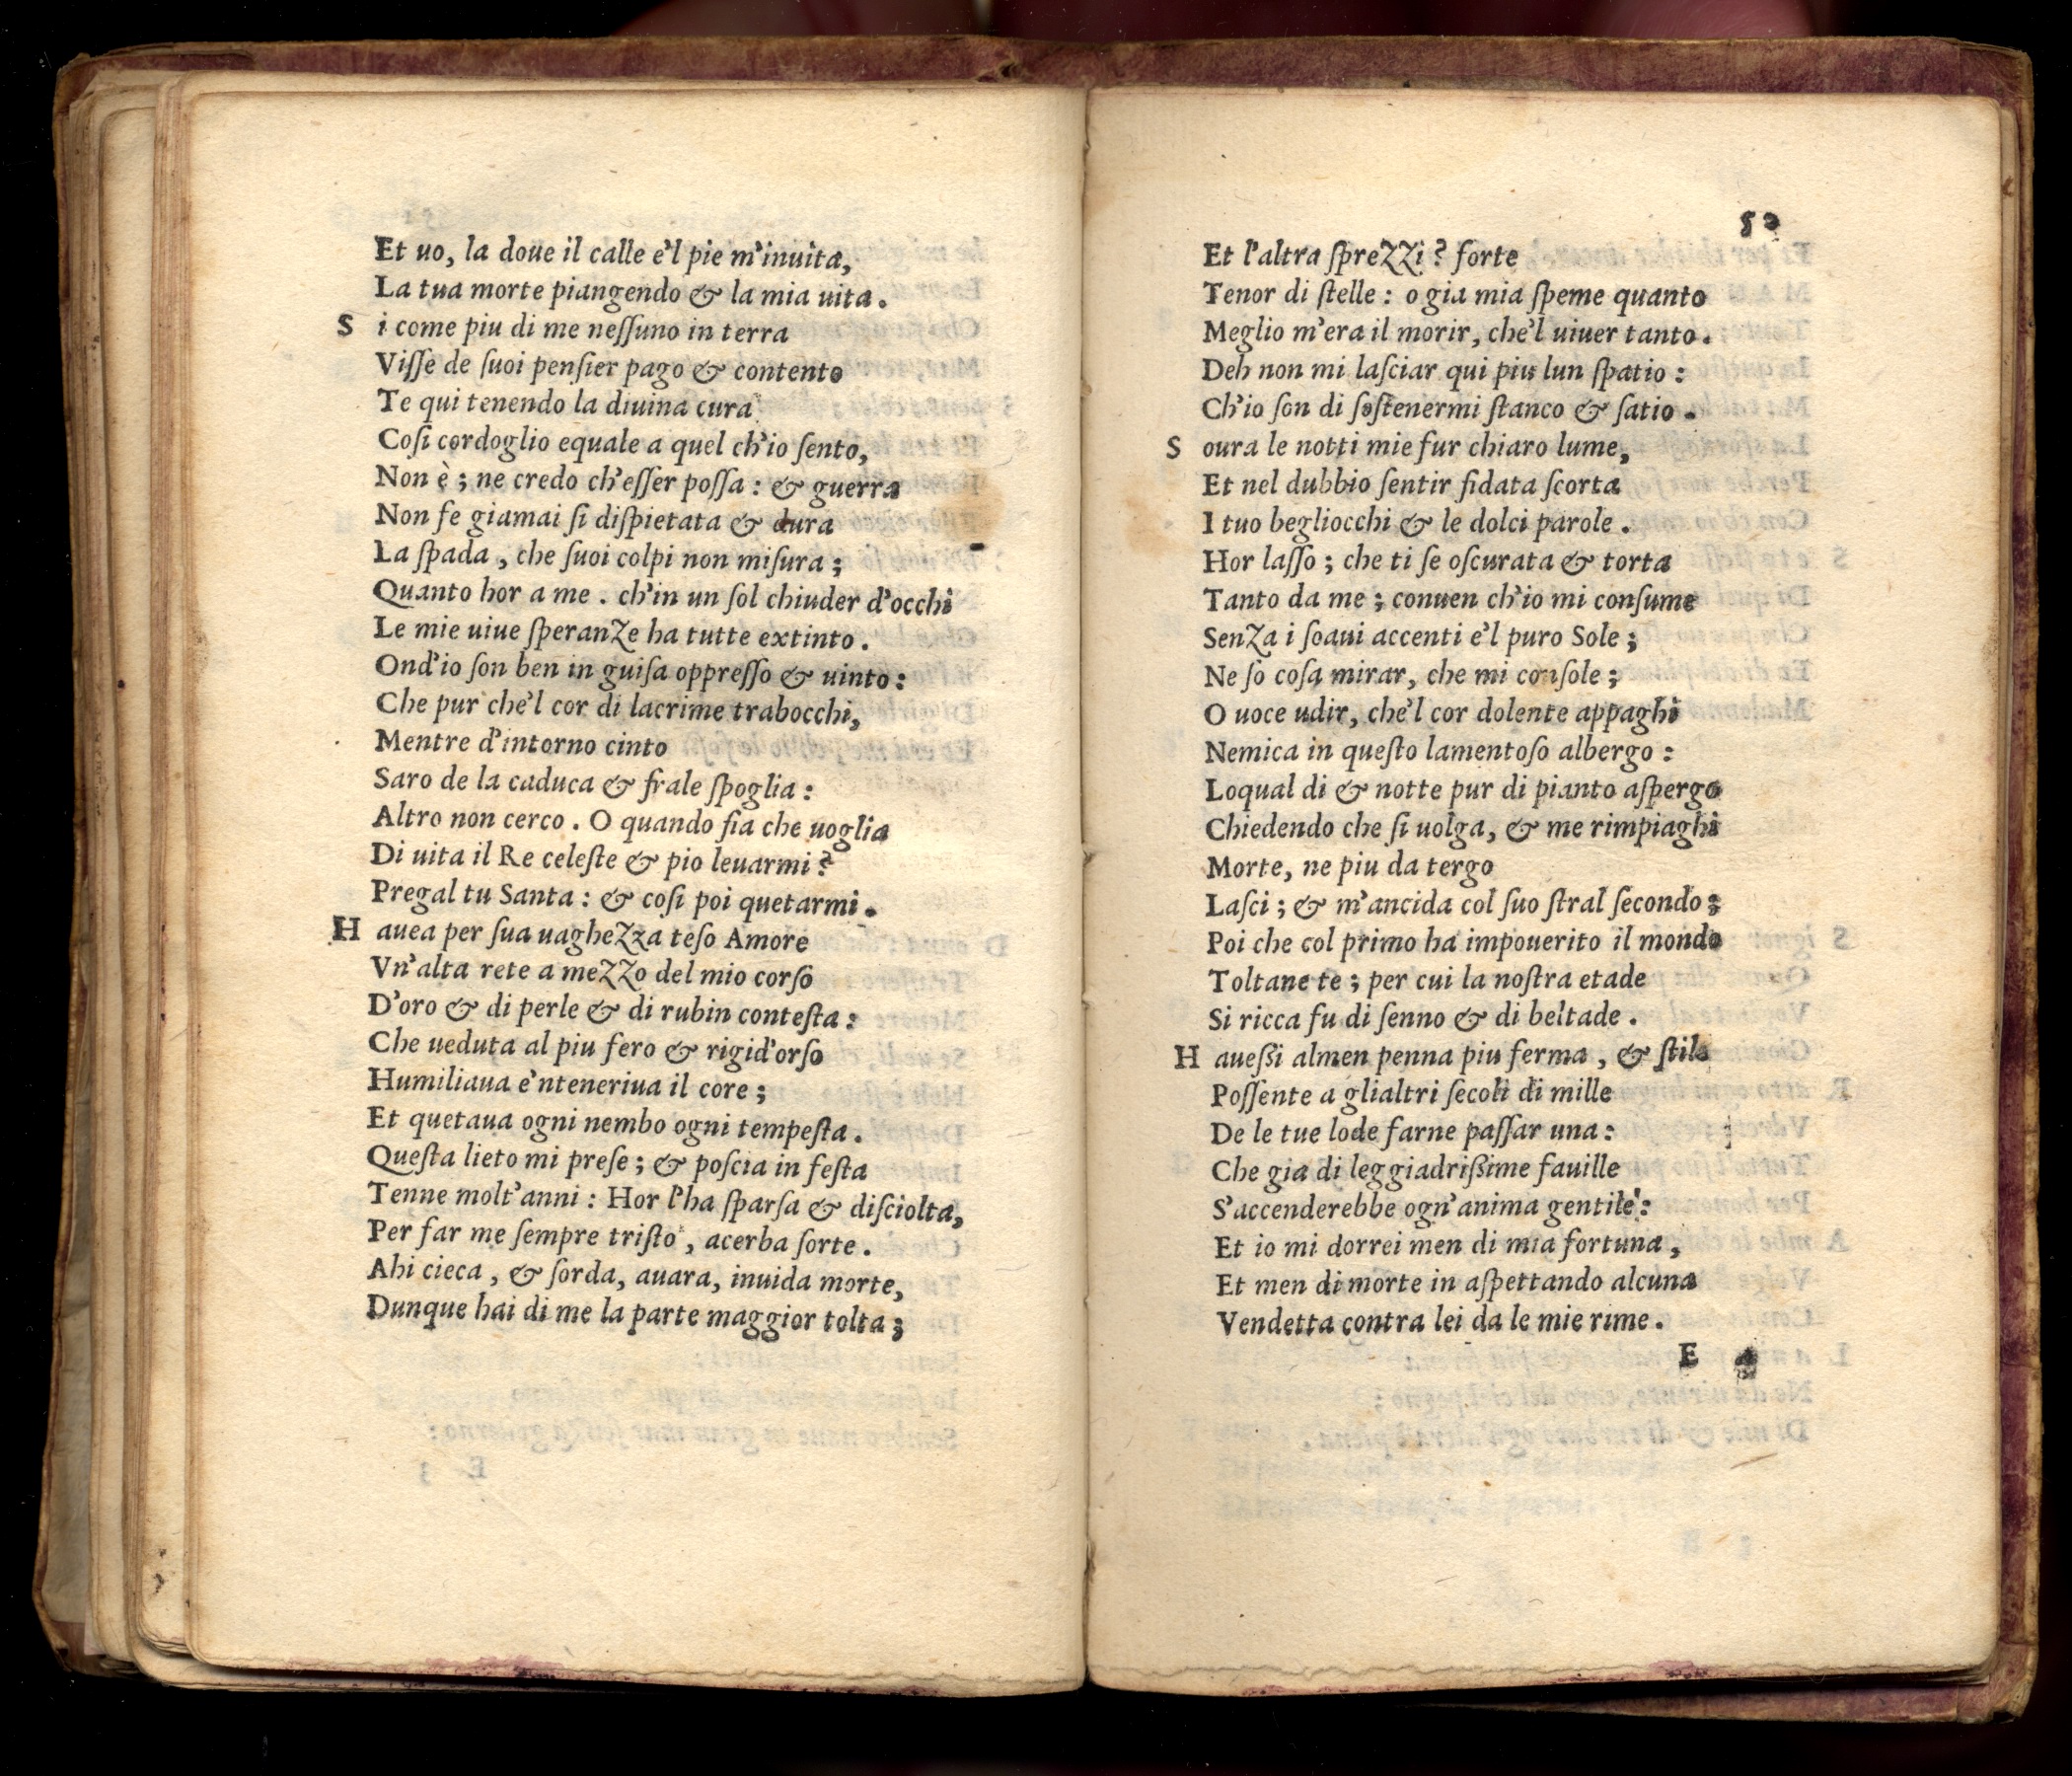 Et uo, la doue il calle e'l pie m'inuita,
La tua morte piangendo & la mia uita.
S i come piu di me neſſuno in terra
Viſſe de ſuoi penſier pago & contento
Te qui tenendo la diuina cura
Coſi cordoglio equale a quel ch'io ſento,
Non è; ne credo ch'eſſer poſſa: & guerra
Non fe giamai ſi diſpietata & dura
La ſpada, che ſuoi colpi non miſura;
Quanto hor a me. ch'in un ſol chiuder d'occhi
Le mie uiue ſperanze ha tutte extinto.
Ond'io ſon ben in guiſa oppreſſo & uinto:
Che pur che'l cor di lacrime trabocchi,
Mentre d'intorno cinto
Saro de la caduca & frale ſpoglia:
Altro non cerco. O quando fia che uoglia
Di uita il Re celeſte & pio leuarmi?
Pregal tu Santa: & coſi poi quetarmi.
H auea per ſua uaghezza teſo Amore
Vn'alta rete a mezzo del mio corſo
D'oro & di perle & di rubin conteſta:
Che ueduta al piu fero & rigid'orſo
Humiliaua e'nteneriua il core;
Et quetaua ogni nembo ogni tempeſta.
Queſta lieto mi preſe; & poſcia in feſta
Tenne molt'anni: Hor l'ha ſparſa & diſciolta,
Per far me ſempre triſto, acerba ſorte.
Ahi cieca, & ſorda, auara, inuida morte,
Dunque hai di me la parte maggior tolta;
50
Et l'altra ſprezzi? forte
Tenor di ſtelle: o gia mia ſpeme quanto
Meglio m'era il morir, che'l uiuer tanto.
Deh non mi laſciar qui piu lun ſpatio:
Ch'io ſon di ſoſtenermi ſtanco & ſatio.
S oura le notti mie fur chiaro lume,
Et nel dubbio ſentir fidata ſcorta
I tuo begliocchi & le dolci parole.
Hor laſſo; che ti ſe oſcurata & torta
Tanto da me; conuen ch'io mi conſume
Senza i ſoaui accenti e'l puro Sole;
Ne ſo coſa mirar, che mi conſole;
O uoce udir, che'l cor dolente appaghi
Nemica in queſto lamentoſo albergo:
Loqual di & notte pur di pianto aſpergo
Chiedendo che ſi uolga, & me rimpiaghi
Morte, ne piu da tergo
Laſci; & m'ancida col ſuo ſtral ſecondo;
Poi che col primo ha impouerito il mondo
Toltane te; per cui la noſtra etade
Si ricca fu di ſenno & di beltade.
H aueßi almen penna piu ferma, & ſtile
Poſſente a glialtri ſecoli di mille
De le tue lode farne paſſar una:
Che gia di leggiadrißime fauille
S'accenderebbe ogn'anima gentile:
Et io mi dorrei men di mia fortuna,
Et men di morte in aſpettando alcuna
Vendetta contra lei da le mie rime.
E